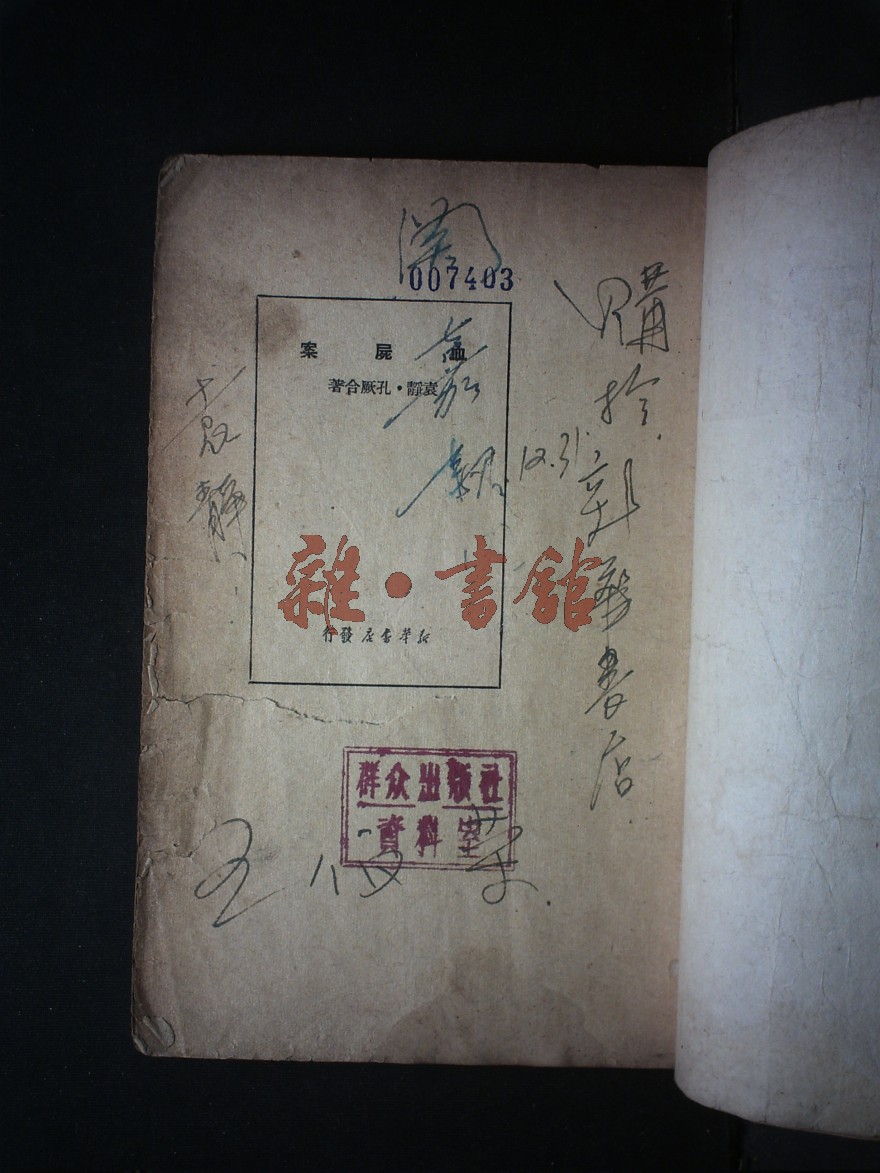 007403
血屍案
袁靜·孔厥合著
新華書店發行
購於新華書店
12.31.
雜·書館
群众出版社
資料室